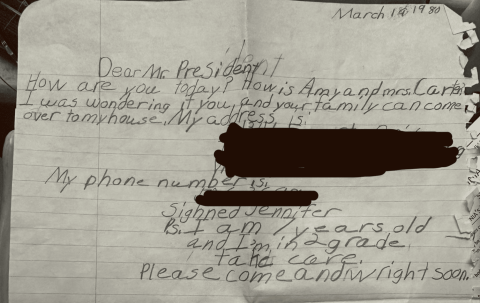 March 19 1980
Dear Mr President
How are you today? How is Amy and mrs. Carter
I was wondering if you, and your family can come
over to my house. My address is:
My phone number is,
Sighned Jennifer
Ps. I am 7 years old
and I'm in 2 grade.
take care.
Please come and wright soon.